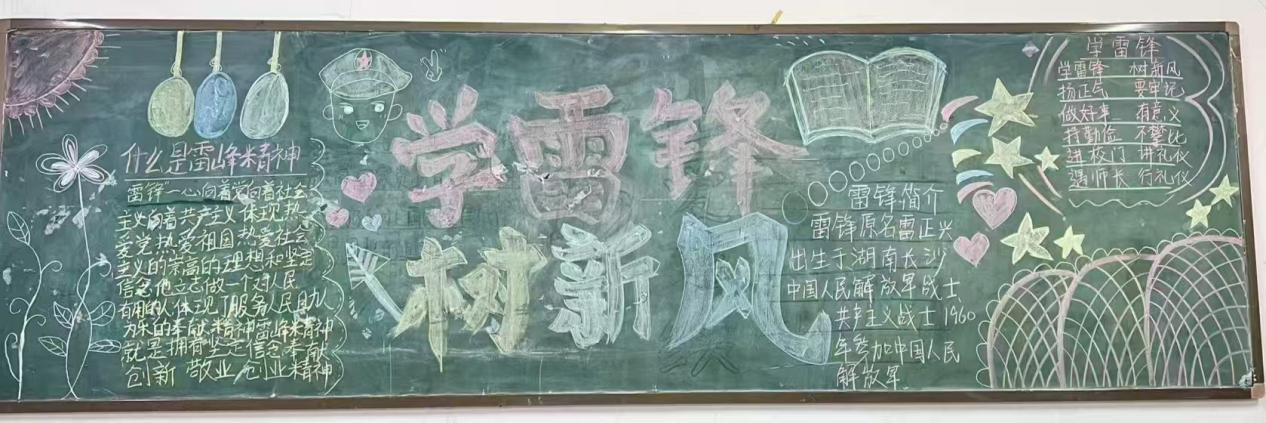 什么是雷峰精神
雷锋一心向着党向着社会
主义向着共产主义体现热
爱党热爱祖国热爱社会
主义的崇高的理想和坚定
信念他立志做一个对人民
有用的人体现了服务人民助人
为乐的奉献精神雷峰精神
就是拥有坚定信念奉献
创新 敬业 创业精神
学雷锋
树新风
雷锋简介
雷锋原名雷正兴
出生于湖南长沙
中国人民解放军战士
共产主义战士1960
年参加中国人民
解放军
学雷锋
学雷锋 树新风
扬正气 要牢记
做好事 有意义
持勤俭 不攀比
进校门 讲礼仪
遇师长 行礼仪